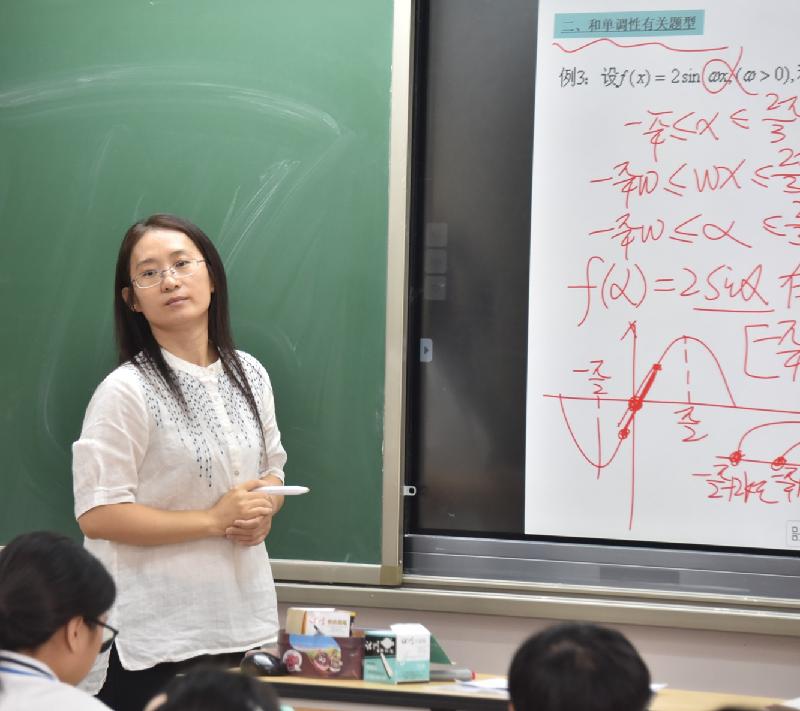 二、和单调性有关题型
例3: 设f(x) = 2sin ωx, (ω > 0),
-π/4 ≤ x ≤ 2π/3
-π/4 w ≤ wx ≤
-π/4 w ≤ α ≤
f(α) = 2sinα 在
[-π/4
-π/2
π/2
-π/2+2kπ